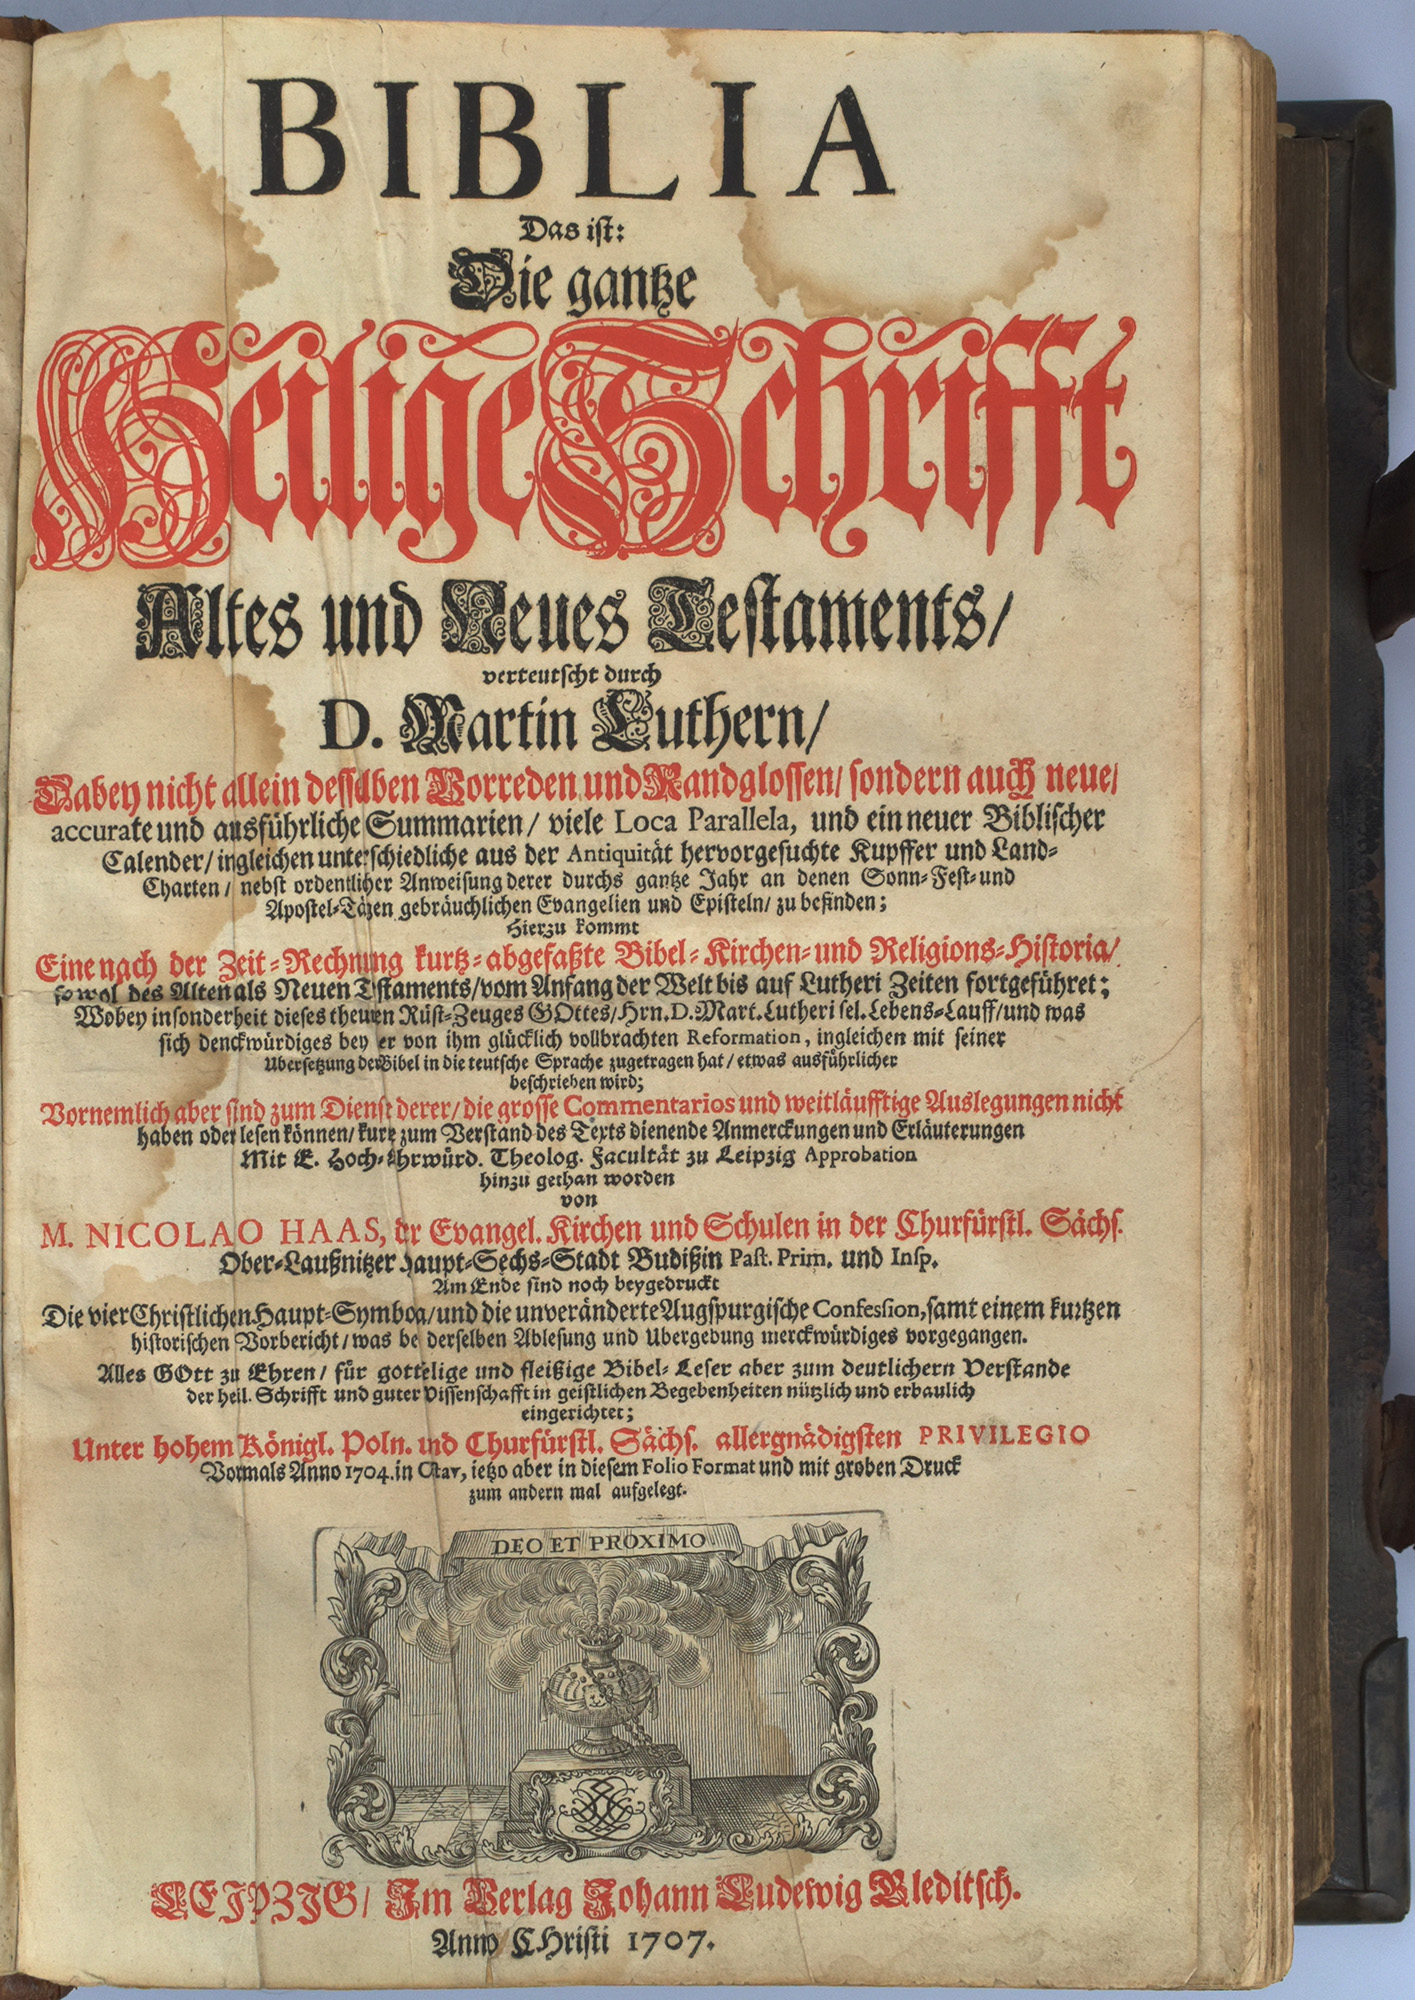 BIBLIA
Das ist:
Die gantze
Heilige Schrifft
Altes und Neues Testaments/
verteutscht durch
D. Martin Luthern/
Dabey nicht allein desselben Vorreden und Randglossen/ sondern auch neue/
accurate und ausführliche Summarien/ viele Loca Parallela, und ein neuer Biblischer
Calender/ ingleichen unterschiedliche aus der Antiquität hervorgesuchte Kupffer und Land-
Charten/ nebst ordentlicher Anweisung derer durchs gantze Jahr an denen Sonn-Fest-und
Apostel-Tägen gebräuchlichen Evangelien und Episteln/ zu befinden;
Hierzu kommt
Eine nach der Zeit-Rechnung kurtz-abgefaßte Bibel-Kirchen-und Religions-Historia/
sowol des Alten als Neuen Testaments/vom Anfang der Welt bis auf Lutheri Zeiten fortgeführet;
Wobey insonderheit dieses theuren Rüst-Zeuges GOttes/Hrn.D.Mart.Lutheri sel.Lebens-Lauff/und was
sich denckwürdiges bey der von ihm glücklich vollbrachten Reformation, ingleichen mit seiner
Ubersetzung der Bibel in die teutsche Sprache zugetragen hat/ etwas ausführlicher
beschrieben wird;
Vornemlich aber sind zum Dienst derer/ die grosse Commentarios und weitläufftige Auslegungen nicht
haben oder lesen können/ kurtz zum Verstand des Texts dienende Anmerckungen und Erläuterungen
Mit E. Hoch-Ehrwürd. Theolog. Facultät zu Leipzig Approbation
hinzu gethan worden
von
M. NICOLAO HAAS, der Evangel. Kirchen und Schulen in der Churfürstl. Sächs.
Ober-Laußnitzer Haupt-Sechs-Stadt Budißin Past. Prim. und Insp.
Am Ende sind noch beygedruckt
Die vier Christlichen Haupt-Symbola/und die unveränderte Augspurgische Confession, samt einem kurtzen
historischen Vorbericht/ was bey derselben Ablesung und Ubergebung merckwürdiges vorgegangen.
Alles GOtt zu Ehren/ für gottselige und fleißige Bibel-Leser aber zum deutlichern Verstande
der heil. Schrifft und guter Wissenschafft in geistlichen Begebenheiten nützlich und erbaulich
eingerichtet;
Unter hohem Königl. Poln. und Churfürstl. Sächs. allergnädigsten PRIVILEGIO
Vormals Anno 1704. in Octav, ietzo aber in diesem Folio Format und mit groben Druck
zum andern mal aufgelegt.
DEO ET PROXIMO
LEIPZIG/ Im Verlag Johann Ludewig Gleditsch.
Anno CHristi 1707.